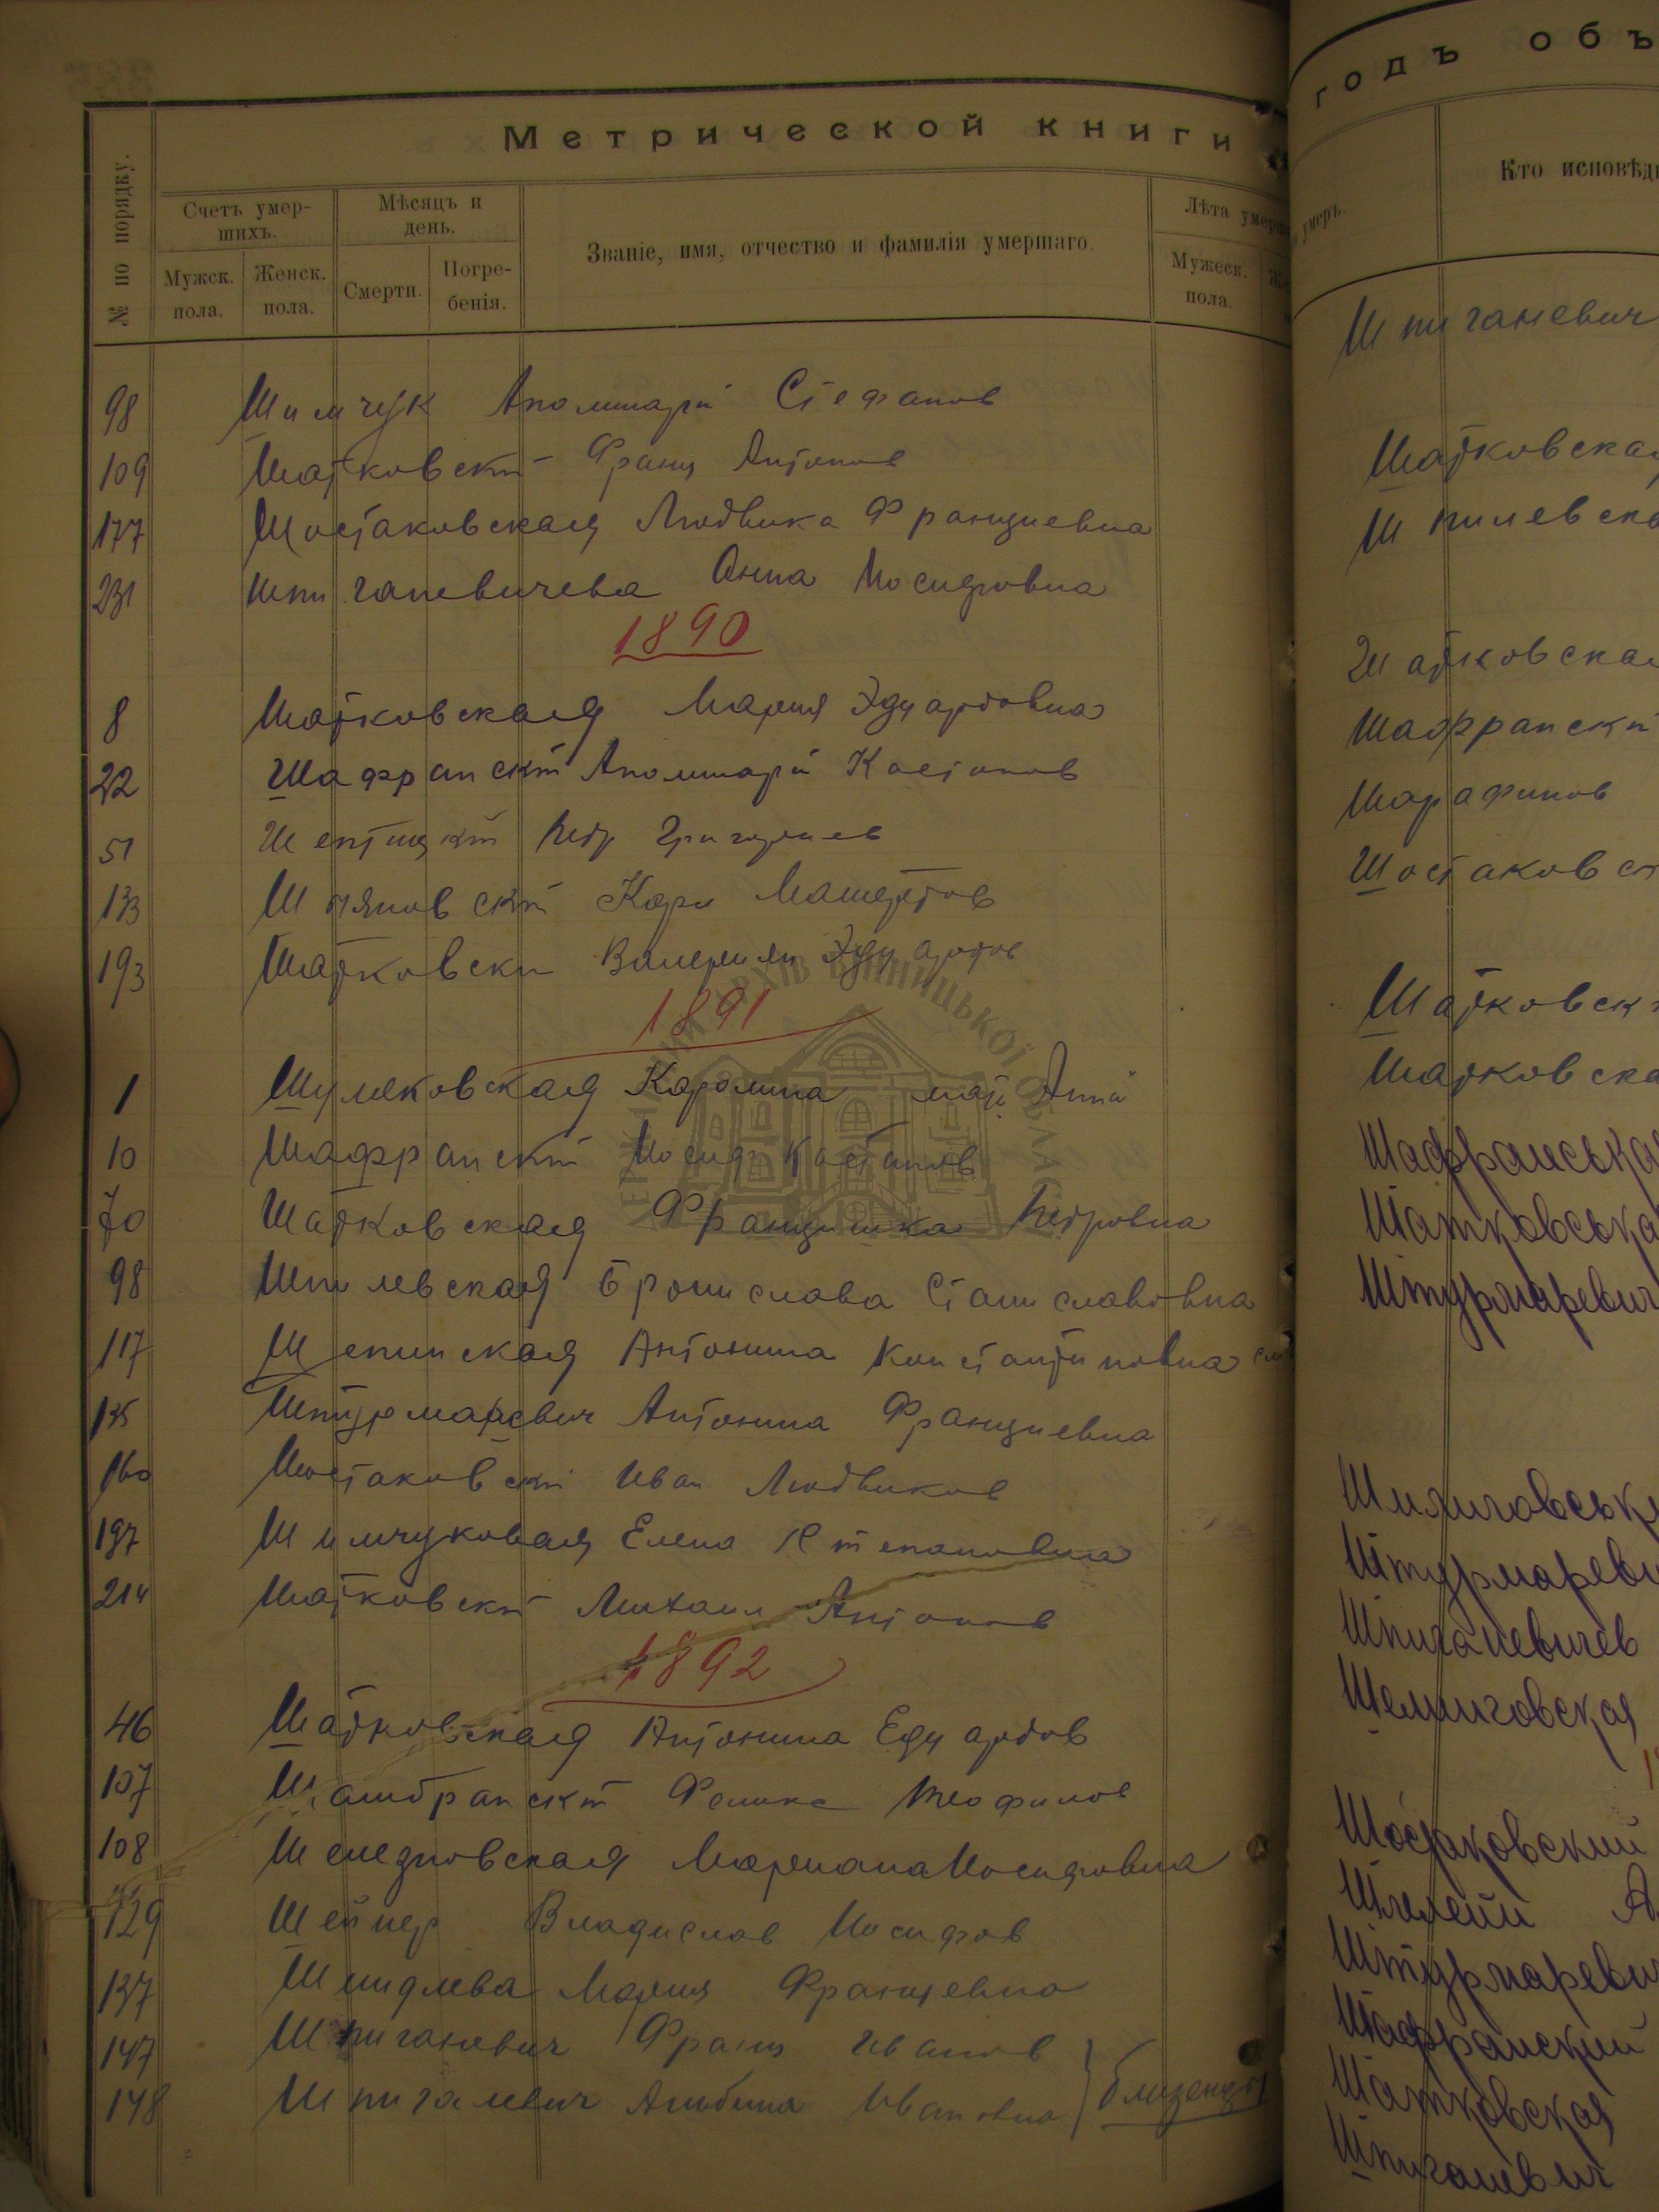 Метрической книги
№ по порядку.
Счетъ умершихъ.
Мужск. пола.
Женск. пола.
Мѣсяцъ и день.
Смерти.
Погребенія.
Званіе, имя, отчество и фамилія умершаго.
Лѣта умерш
Мужеск. пола.
98 Шимчук Аполинарй Стефанов
109 Шатковский Франц Антонов
177 Шостаковская Людвика Францievна
231 Шпиганевичева Анна Иосифовна
1890
8 Шатковская Мария Эдуардовна
22 Шафранский Аполинарй Каетанов
51 Шептицкий Петр Григориев
133 Карл
193 Шатковски Валериян Эдуардов
1891
1 Шуляковская Каролина мат. Анны
10 Шафранский Иосиф Каетанов
70 Шатковская Францишка Петровна
98 Шпилевская Бронислава Станиславовна
117 Антонина Константиновна
135 Штурмаревич Антонина Францievна
160 Шостаковский Иван Людвиков
197 Шимчуковая Елена Степановна
214 Шатковский Михаил Антонов
1892
46 Шатковская Антонина Едуардов
107 Феликс Теофилов
108 Мариана Иосифовна
129 Шейнер Владислав Иосифов
137 Мария Францевна
147 Шпиганевич Франц Иванов
148 Шпиганевич Альбина Ивановна } близнецы
годъ объ
умеръ.
Кто исповѣд
Шпиганевич
Шатковская
Шпилевска
Шатковская
Шафрански
Шарафинов
Шостаковс
Шатковск
Шатковска
Шафранська
Шатковська
Штурмаревич
Шилиговськ
Штурмареви
Шпиганевичев
Шелиговская
Шостаковский
Штурмареви
Шафранский
Шатковская
Шпиганевич